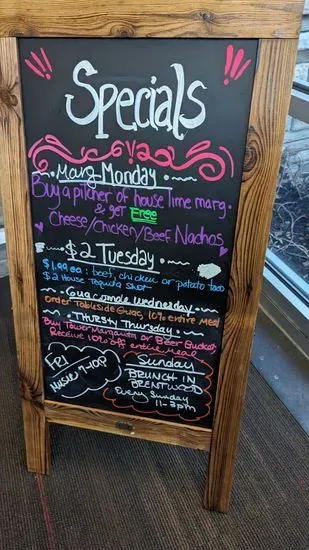 Specials
Marg Monday
Buy a pitcher of house lime marg.
& get Free
Cheese/Chicken/Beef Nachos
$2 Tuesday
$1.99 ea: beef, chicken or potato taco
$2 House Tequila Shot
Guacamole Wednesday
Order Tableside Guac, 10% entire meal
Thursty Thursday
Buy Tower Margarita or Beer Bucket
Receive 10% off entire meal
FRI
Music 7-10P
Sunday
Brunch in
Brentwood
Every Sunday
11-3pm